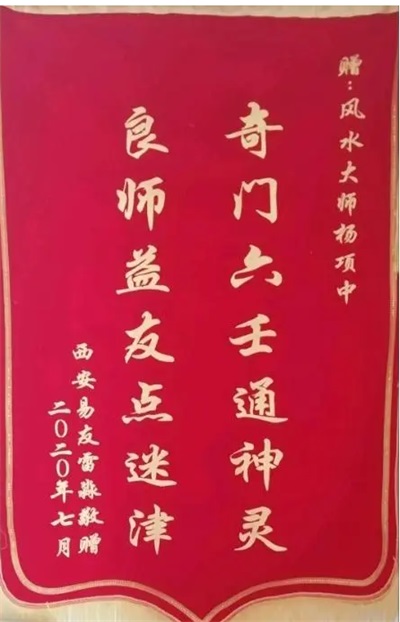 赠:风水大师杨项中
奇门六壬通神灵
良师益友点迷津
西安易友雷淼敬赠
二〇二〇年七月